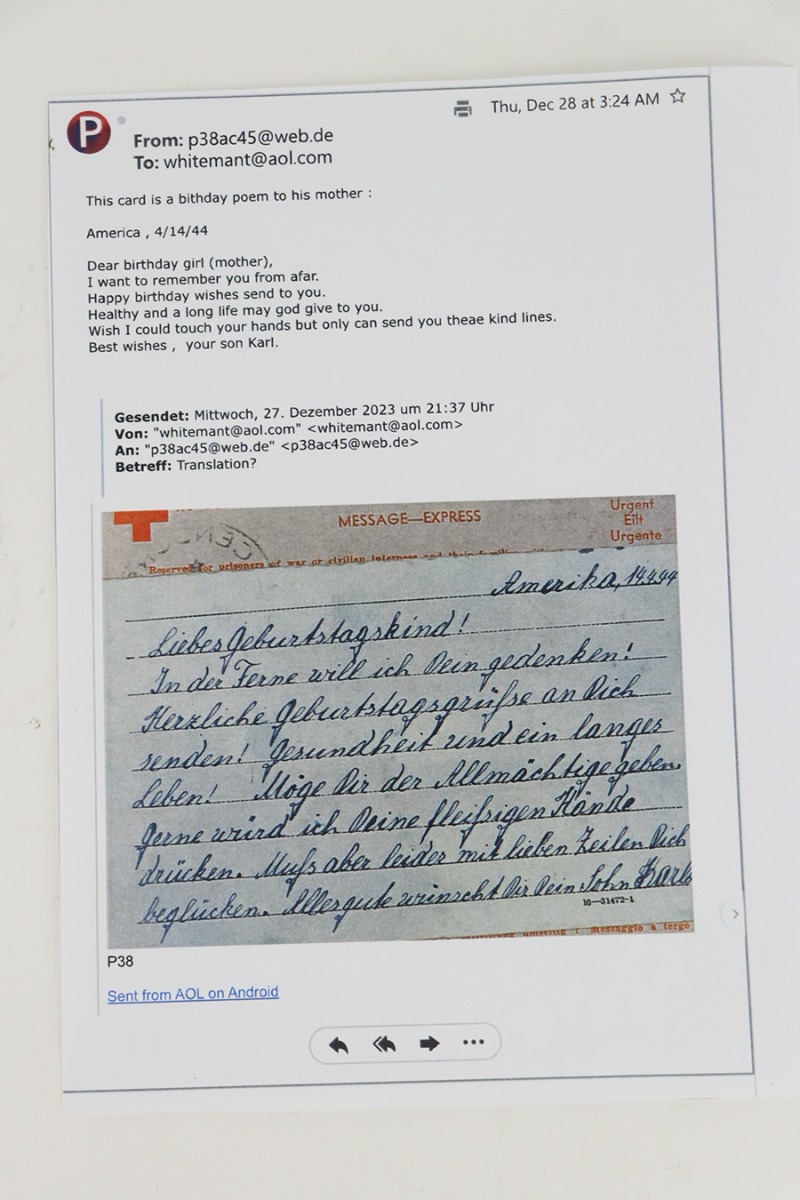 P
Thu, Dec 28 at 3:24 AM
From: p38ac45@web.de
To: whitemant@aol.com
This card is a bithday poem to his mother :
America , 4/14/44
Dear birthday girl (mother),
I want to remember you from afar.
Happy birthday wishes send to you.
Healthy and a long life may god give to you.
Wish I could touch your hands but only can send you theae kind lines.
Best wishes , your son Karl.
Gesendet: Mittwoch, 27. Dezember 2023 um 21:37 Uhr
Von: "whitemant@aol.com" <whitemant@aol.com>
An: "p38ac45@web.de" <p38ac45@web.de>
Betreff: Translation?
MESSAGE—EXPRESS
Urgent
Eilt
Urgente
Reserved for prisoners of war or civilian internees and their
Amerika, 14.4.44
Liebes Geburtstagskind!
In der Ferne will ich Dein gedenken!
Herzliche Geburtstagsgrüße an Dich
senden! Gesundheit und ein langes
Leben! Möge Dir der Allmächtige geben.
Gerne würd ich Deine fleißigen Hände
drücken. Muß aber leider mit lieben Zeilen Dich
beglücken. Alles gute wünscht Dir Dein Sohn Karl
16—31472-1
messaggio a tergo
P38
Sent from AOL on Android